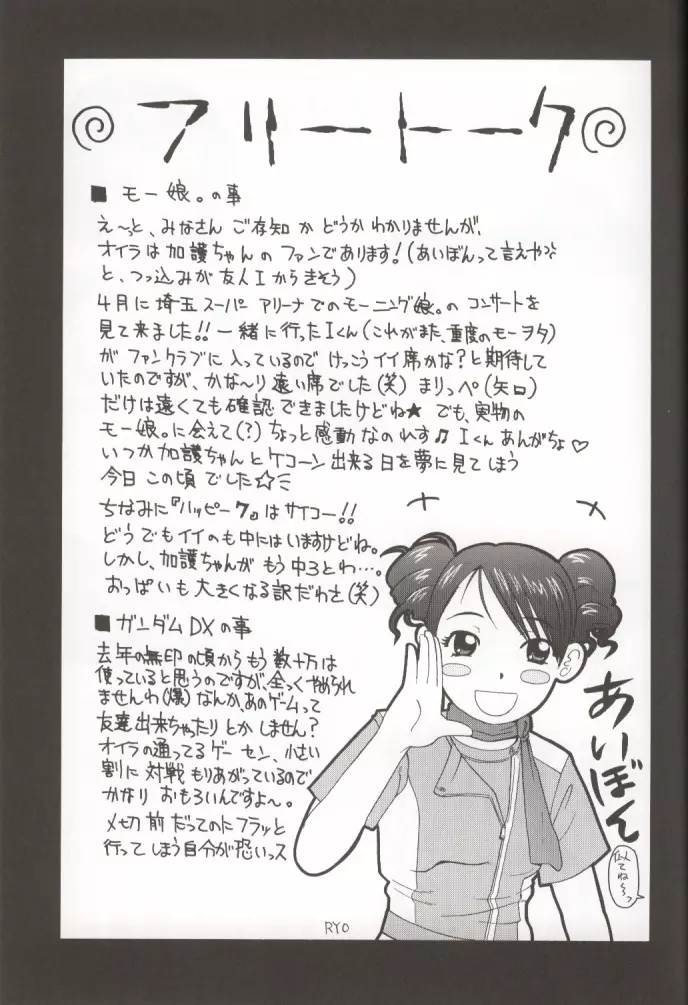 フリートーク
■ モー娘。の事
え〜っと、みなさん ご存知 か どうか わかりませんが、
オイラは 加護ちゃん の ファンであります!(あいぼんって言えや!!
と、つっ込みが 友人 I から きそう)
4月に 埼玉 スーパー アリーナ での モーニング娘。の コンサートを
見て来ました!! 一緒に行ったIくん(これがまた、重度のモーヲタ)
が ファンクラブに 入っているので けっこう イイ席かな?と期待して
いたのですが、かな〜り 遠い席 でした(笑) まりっぺ(矢口)
だけは遠くても確認 できましたけどね★ でも、実物の
モー娘。に会えて(?)ちょっと感動 なのれす♫ Iくん あんがちょ♡
ちなみに『ハッピー7』は サイコー!!
どうでもイイのも中にはいますけどね。
■ ガンダムDXの事
去年の無印の頃から もう 数十万は
使っていると思うのですが、全っくやめられ
ませんわ(爆) なんか、あのゲームって
友達出来ちゃったり とか しません?
オイラの通ってる ゲーセン、小さい
割に 対戦 もりあがっているので
かなり おもろいんですよ〜。
〆切前 だってのに フラッと
行ってしまう自分が恐いっス
あいぼん
似てね〜っ
RYO